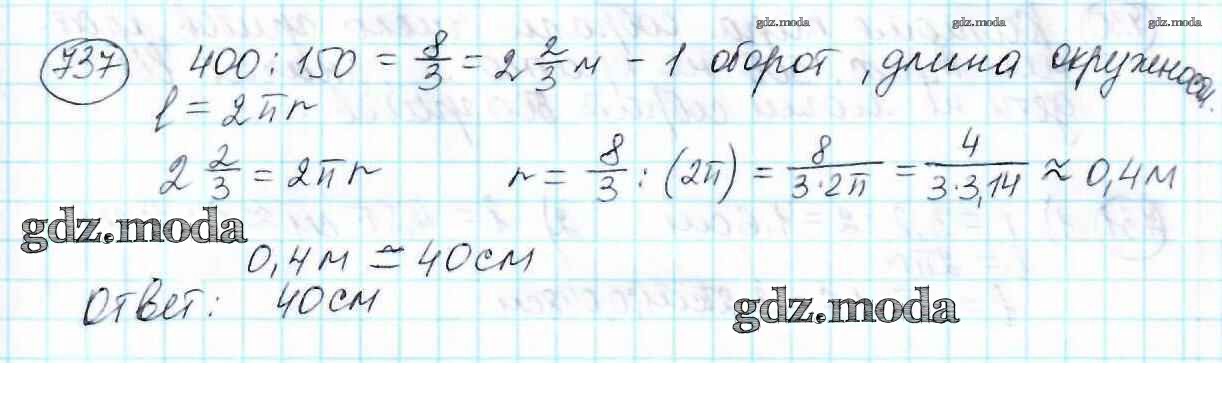 gdz.moda gdz.moda gdz.moda
737 400 : 150 = 8/3 = 2 2/3 м - 1 оборот, длина окружности.
l = 2πr
2 2/3 = 2πr r = 8/3 : (2π) = 8/(3·2π) = 4/(3·3,14) ≈ 0,4 м
gdz.moda
0,4 м ≃ 40 см
Ответ: 40 см
gdz.moda